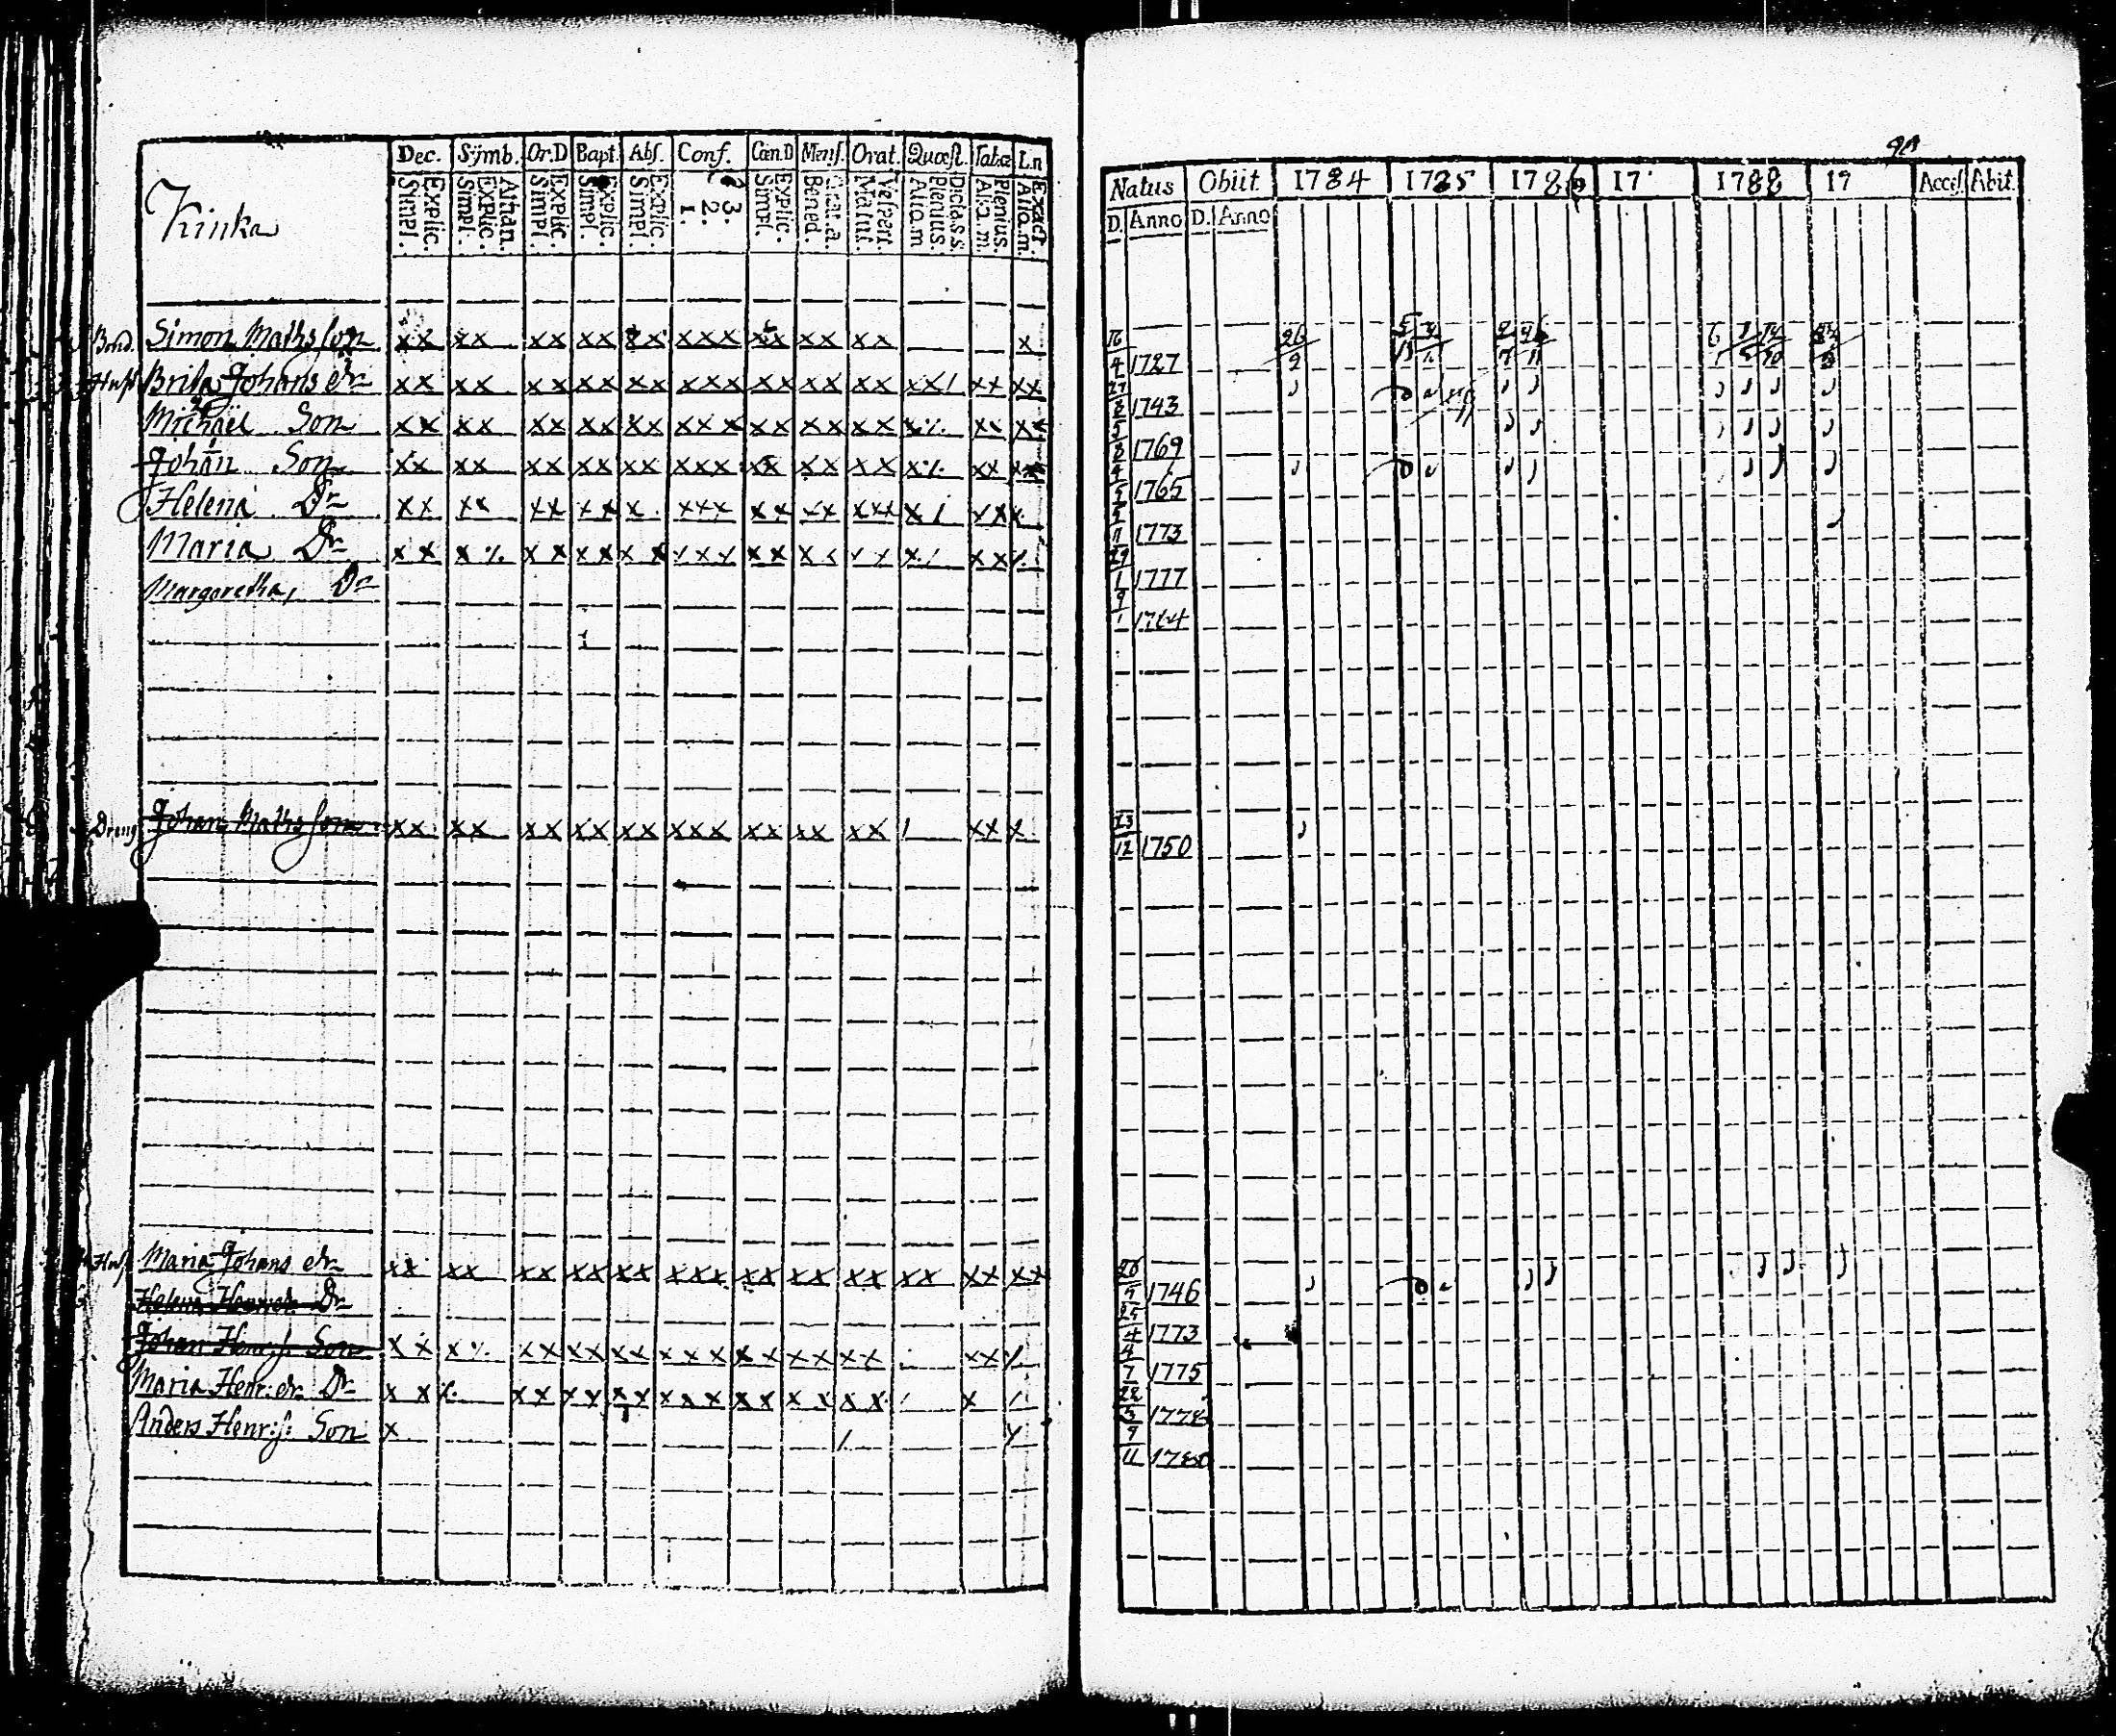 Kinka
Dec. Symb. Or.D Bapt. Abs. Conf. Cœn.D Mens. Orat. Quæst. Tabœ L.n
Explic. Simpl. Athan. Explic. Simpl. Explic. Simpl. Explic. Simpl. Explic. Simpl. 3. 2. 1. Explic. Simpl. Grat.a. Bened. Vespert. Matut. Dicta.s.s. Plenius. Aliq.m Plenius. Aliq.m. Exact. Aliq.m.
Bond. Simon Mathsson xx xx xx xx xx xxx xx xx xx x
Hust Brita Johans dr xx xx xx xx xx xxx xx xx xx xx/ xx xx
2 Michaël Son xx xx xx xx xx xxx xx xx xx x% xx xx
1 Johan Son xx xx xx xx xx xxx xx xx xx x% xx xx
Helena Dr xx xx xx xx x xxx xx xx xxx x/ xxx x
Maria Dr xx x% xx xx xx xxx xx xx xx x/ xx x
Margaretha, Dr
Dreng Johan Mathsson xx xx xx xx xx xxx xx xx xx / xx x
Hust Maria Johans dr xx xx xx xx xx xxx xx xx xx xx xx xx
Helena Henrich Dr
Johan Henr:s: Son xx x% xx xx xx xxx xx xx xx xx /
Maria Henr: dr Dr xx x xx xx xx xxx xx xx xx / x /
Anders Henr:s: Son x / y
Natus Obiit. 1784 1785 1786 17 1788 17 Access. Abit.
D. Anno D. Anno
16/4 1727 26/9 2/7 26/11 6/1 14/10
27/8 1743
5/8 1769
4/5 1765
2/11 1773
29/1 1777
9/1 1784
23/12 1750
20/9 1746
25/4 1773
4/7 1775
22/3 1778
9/11 1780